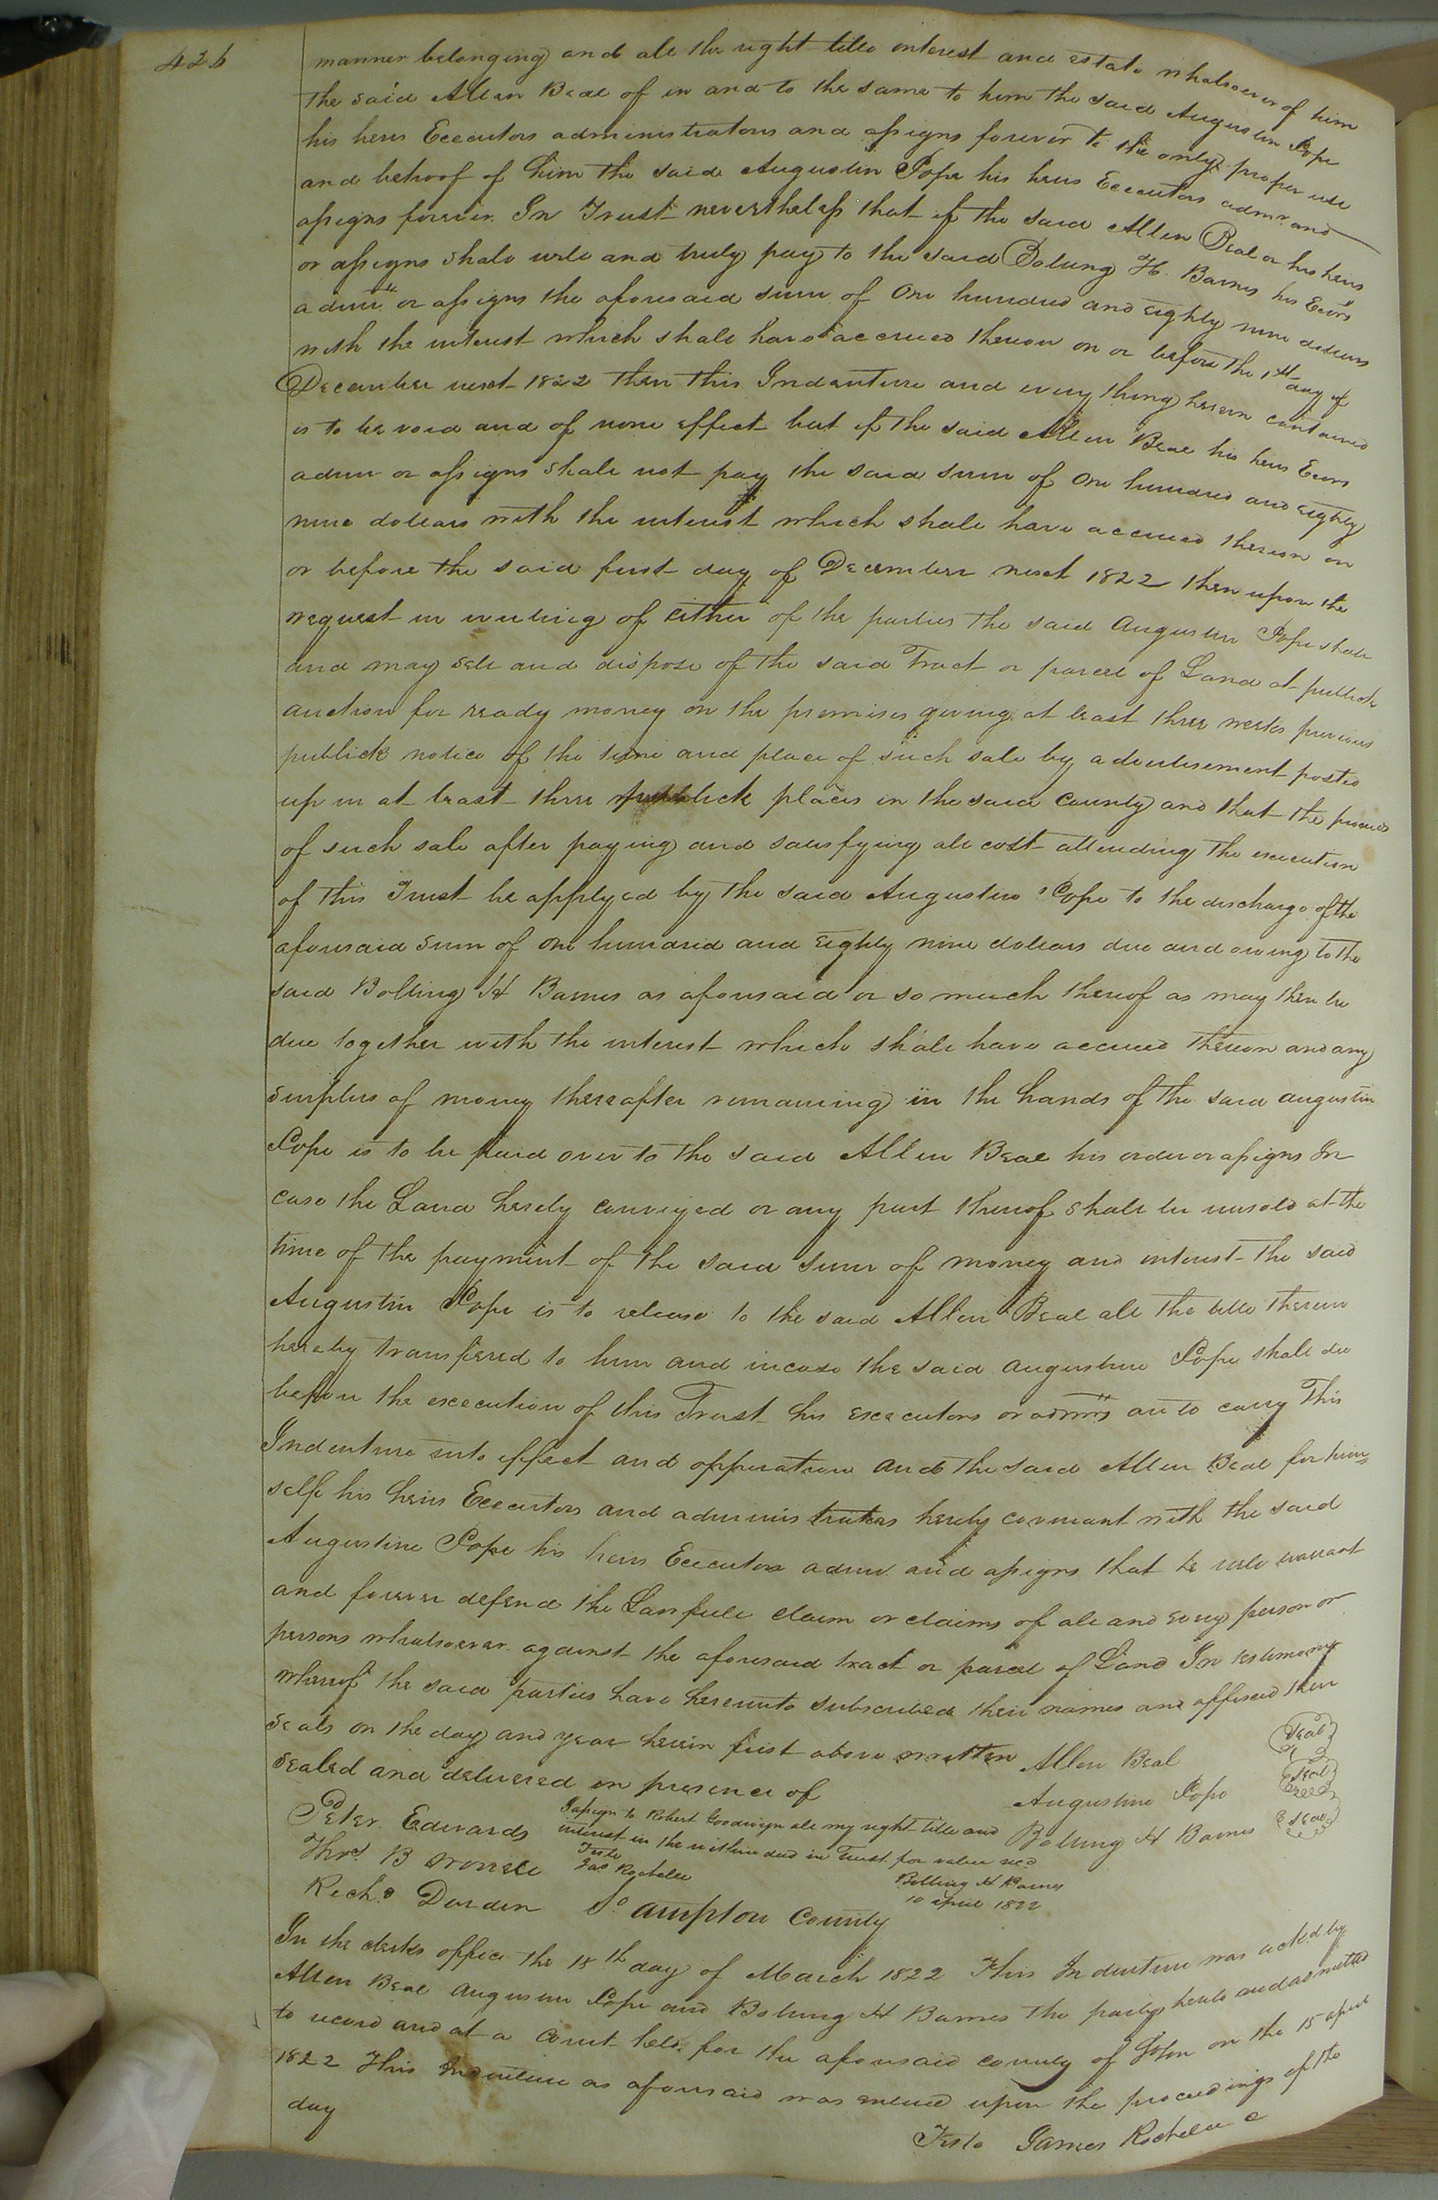 426
manner belonging and all the right title interest and estate whatsoever of him
the said Allen Beal of in and to the same to him the said Augustin Pope
his heirs Executors administrators and assigns forever to the only proper use
and behoof of him the said Augustin Pope his heirs Executors admr and
assigns forever. In Trust nevertheless that if the said Allen Beal or his heirs
or assigns shall well and truly pay to the said Bolling H. Barnes his Exors
admrs or assigns the aforesaid sum of One hundred and eighty nine dollars
with the interest which shall have accrued thereon on or before the 1st day of
December next 1822 then this Indenture and every thing herein contained
is to be void and of none effect but if the said Allen Beal his heirs Exors
admr or assigns shall not pay the said sum of One hundred and eighty
nine dollars with the interest which shall have accrued thereon on
or before the said first day of December next 1822 then upon the
request in writing of either of the parties the said Augustin Pope shall
and may sell and dispose of the said Tract or parcel of Land at publick
auction for ready money on the premises giving at least three weeks previous
publick notice of the time and place of such sale by advertisement posted
up in at least three publick places in the said County and that the proceeds
of such sale after paying and satisfying all cost attending the execution
of this Trust be applyed by the said Augustine Pope to the discharge of the
aforesaid sum of one hundred and eighty nine dollars due and owing to the
said Bolling H Barnes as aforesaid or so much thereof as may then be
due together with the interest which shall have accrued thereon and any
surplus of money thereafter remaining in the hands of the said augustin
Pope is to be paid over to the said Allen Beal his order or assigns In
case the Land hereby conveyed or any part thereof shall be unsold at the
time of the payment of the said sum of money and interest the said
Augustin Pope is to release to the said Allen Beal all the title therein
hereby transfered to him and incase the said augustine Pope shall die
before the execution of this Trust his executors or admrs are to carry This
Indenture into effect and opperation and the said Allen Beal for him=
self his heirs Executors and administrators hereby covenant with the said
Augustine Pope his heirs Executors admr and assigns that he will warrant
and forever defend the Lawfull claim or claims of all and every person or
persons whatsoever against the aforesaid tract or parcel of Land In testimony
whereof the said parties have hereunto subscribed their names and affixed their
seals on the day and year herein first above written Allen Beal Seal
Sealed and delivered in presence of Augustine Pope Seal
Peter Edwards Bolling H Barnes Seal
I assign to Robert Goodwyn all my right title and
interest in the within deed in Trust for value recd
Teste Jas Rochelle Bolling H Barnes
10 april 1822
Thos B
Richd Darden So ampton County
In the clerks office the 18th day of March 1822 This Indenture was ackd by
Allen Beal Augustin Pope and Bolling H Barnes the partys hereto and admitted
to record and at a Court held for the aforesaid county of Soton on the 15 april
1822 This Indenture as aforesaid was entered upon the proceedings of the
day
Teste James Rochelle C